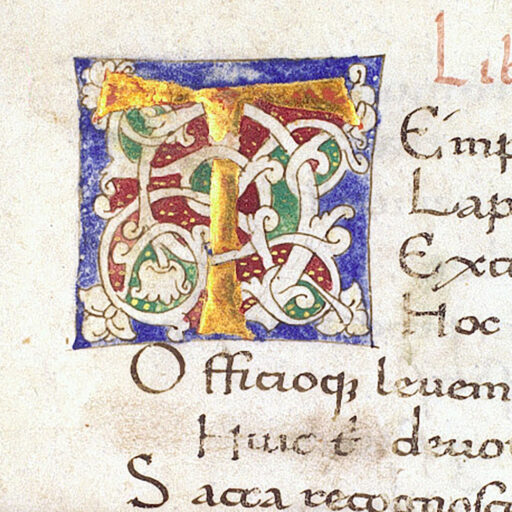 Lib
T Emp
Lap
Exci
Hoc
O fficioqꝫ leuem
Huic t̄ deuo
S acra recognosc